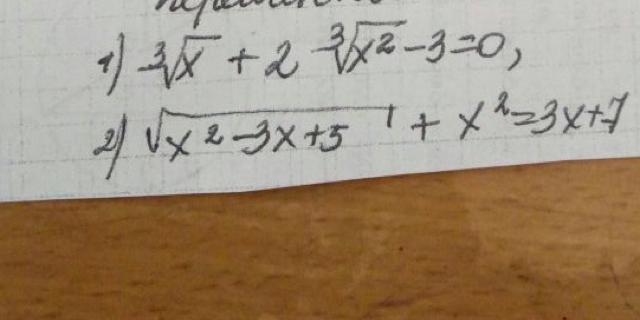 1) ∛x + 2 ∛x² - 3 = 0,
2) √(x² - 3x + 5) + x² = 3x + 7